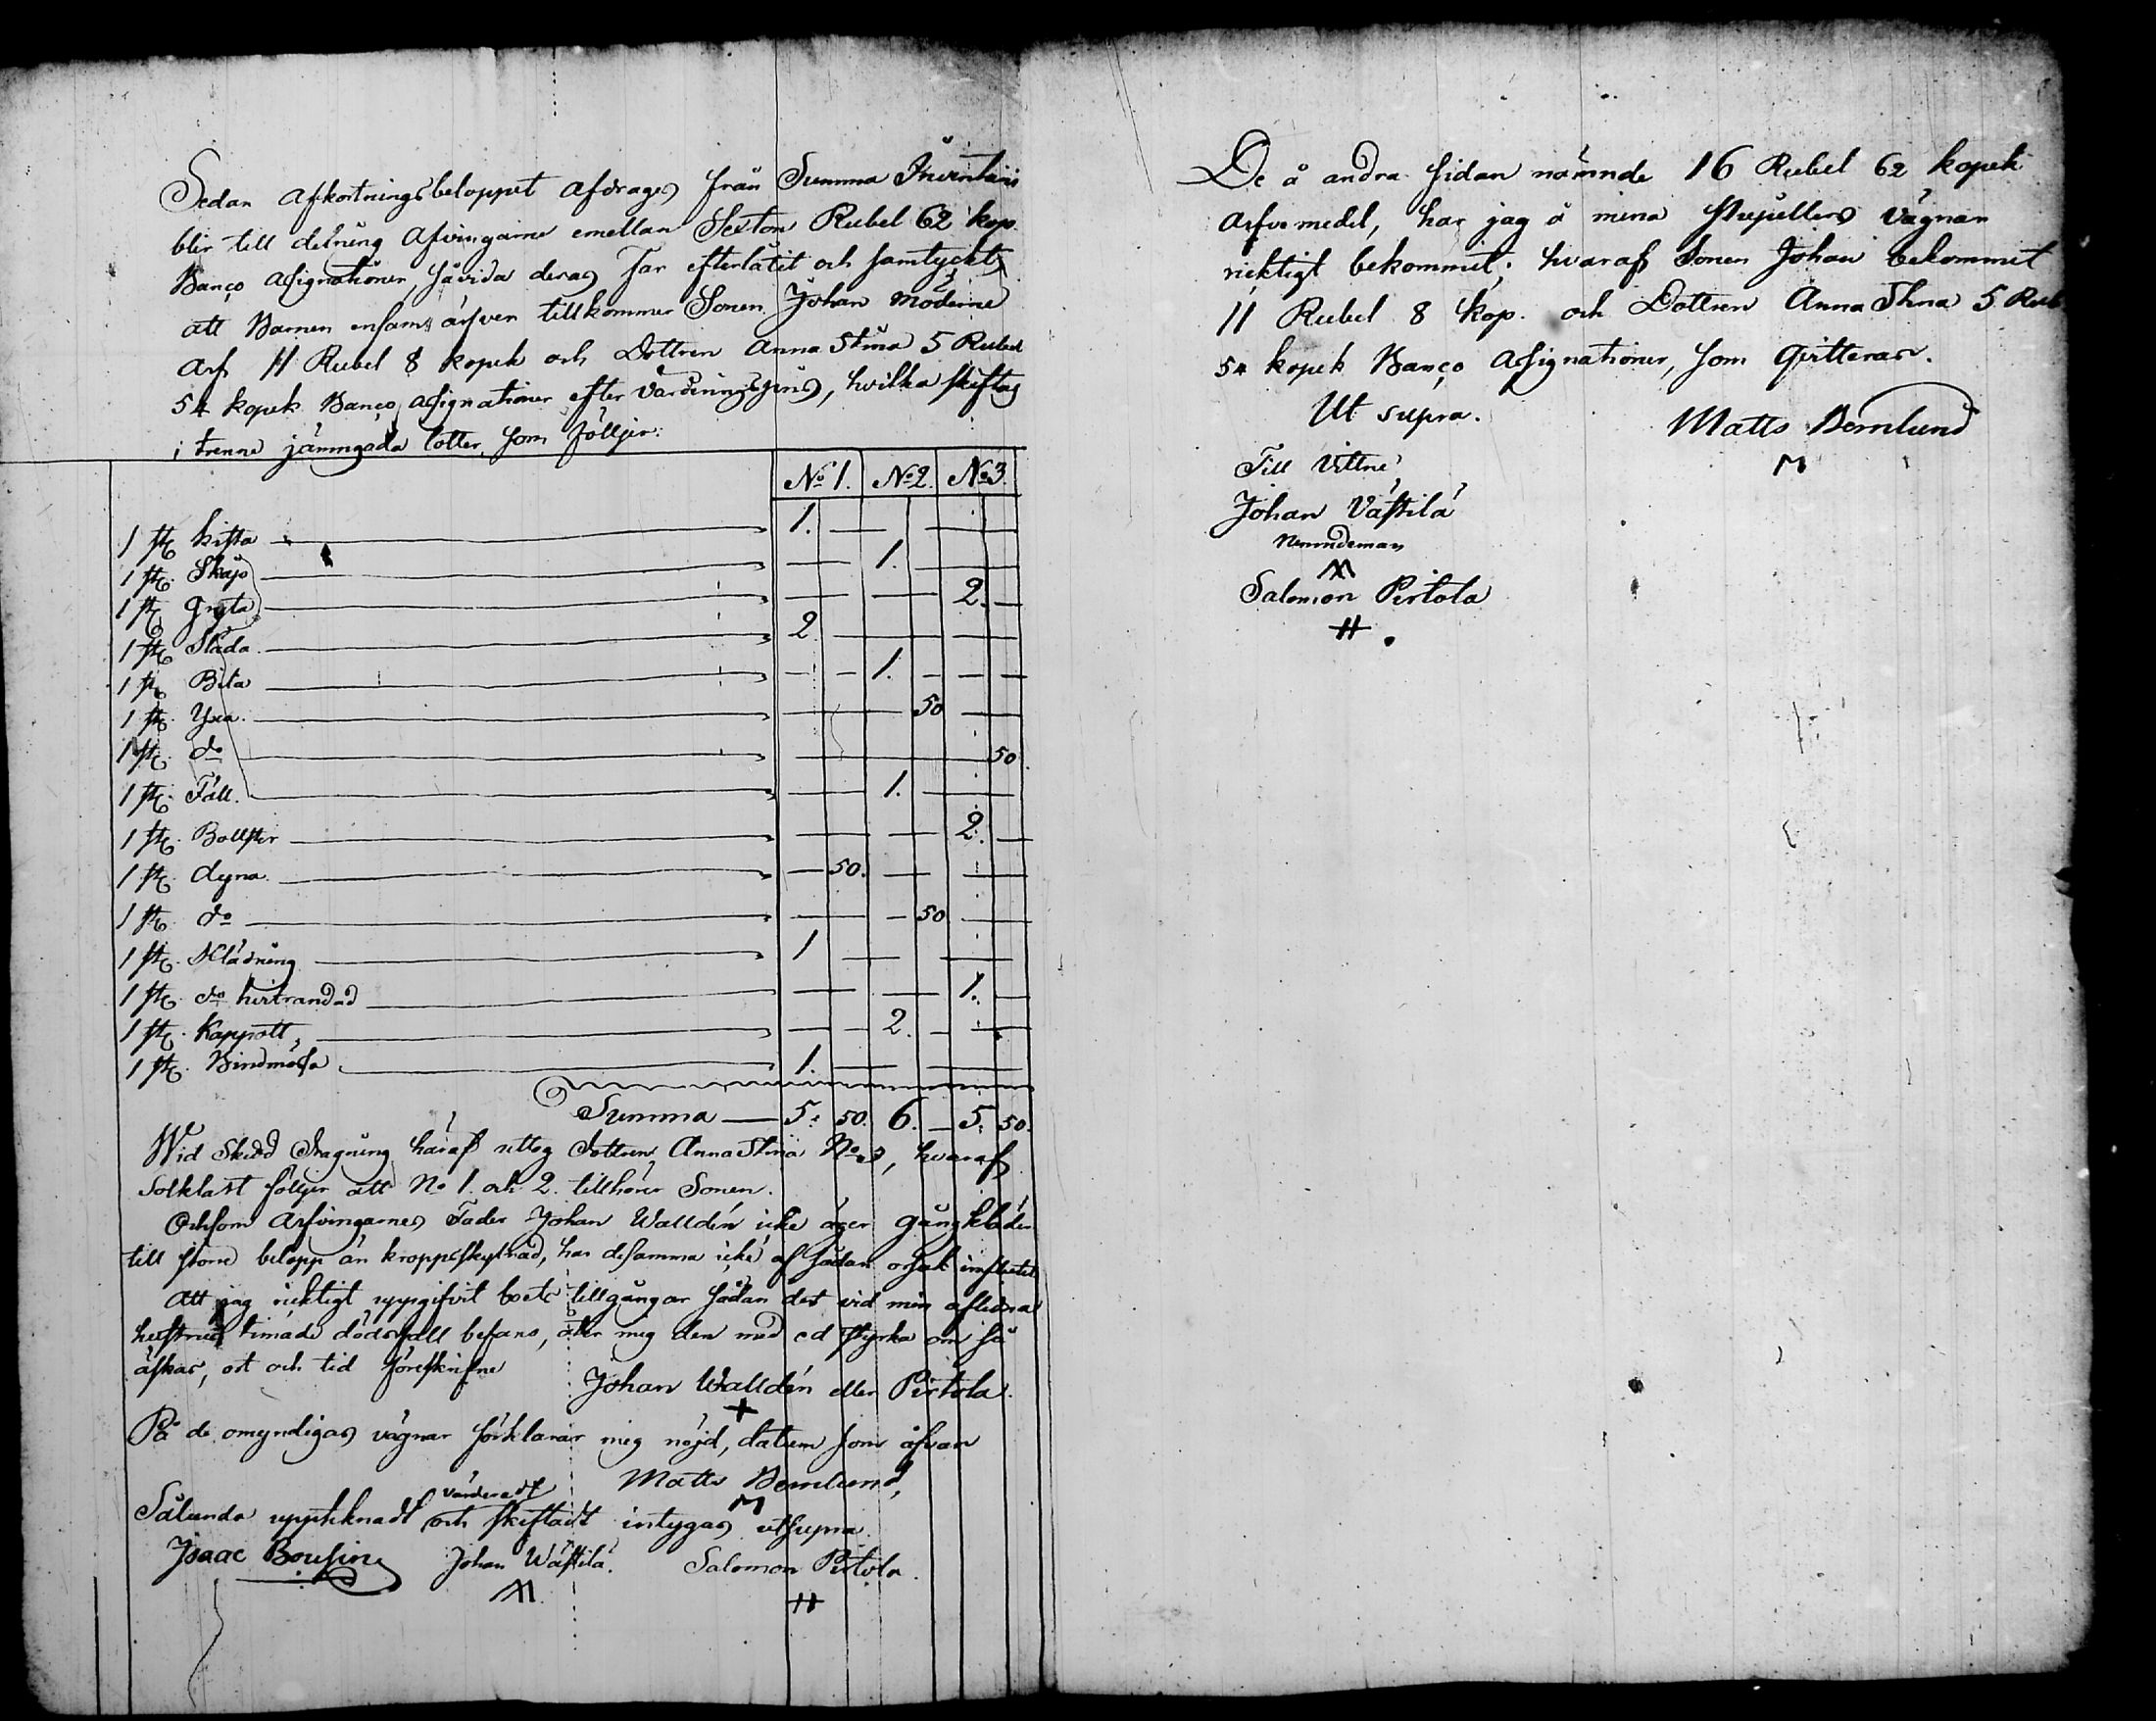 Sedan Afkortningsbeloppet afdrages från Summa Inventarii
blir till delning Arfvingarne emellan Sexton Rubel 62 kop.
Banco Assignationer, såvida deras Far efterlåtit och samtyckt
att Barnen ensamt ärfver tillkommer Sonen Johan Möderne
Arf 11 Rubel 8 kopek och Dottren Anna Stina 5 Rubel
54 kopek Banco Assignationer efter värderingspris, hvilka skiftas
i trenne jämngoda lotter, som följer:
No 1. No 2. No 3.
1 st. kista 1. — — —
1 st. Skåp — 1. —
1 st. Gryta — — 2. —
1 st. Släda 2. — — —
1 st. Bila — — 1. — — —
1 st. Yxa. — — 50 —
1 st. do — — 50.
1 st. Fäll. — 1. —
1 st. Bollster — — 2. —
1 st. dyna. — 50. — —
1 st. do — — 50 —
1 st. Klädning 1 — —
1 st. do hvitrandad — — 1. —
1 st. Kappott, — — 2. — —
1 st. Bindmössa 1. — —
Summa — 5: 50. 6. — 5: 50.
Wid Skedd Dragning häraf uttog Dottren Anna Stina No 3, hvaraf
Solklart följer att No 1. och 2. tillhörer Sonen.
Och som Arfvingarnes Fader Johan Walldén icke äger gångkläder
till större belopp än kroppsskylnad, har desamma icke af sådan orsak influtit
Att jag riktigt uppgifvit boets tillgångar sådan det vid min aflidna
hustrus timade dödsfall befans, åter mig den med ed styrka om så
äskas, ort och tid föreskrifne
Johan Walldén eller Pirtola.
+
På de omyndigas vägnar förklarar mig nöjd, datum som ofvan
Matts Bernlund,
M
värderadt
Sålunda uppteknadt och skiftadt intygas ut supra.
Isaac Johan Wästilä. Salomon Pirtola.
De å andra sidan nämnde 16 Rubel 62 kopek
Arfvemedel, har jag å mina Pupillers vägnar
riektigt bekommit; hvaraf Sonen Johan bekommit
11 Rubel 8 kop. och Dottren Anna Stina 5 Rub
54 kopek Banco Assignationer, som qvitteras.
Ut supra. Matts Bernlund
M
Till Vittne
Johan Västilä
Nämndeman
Salomon Pirtola